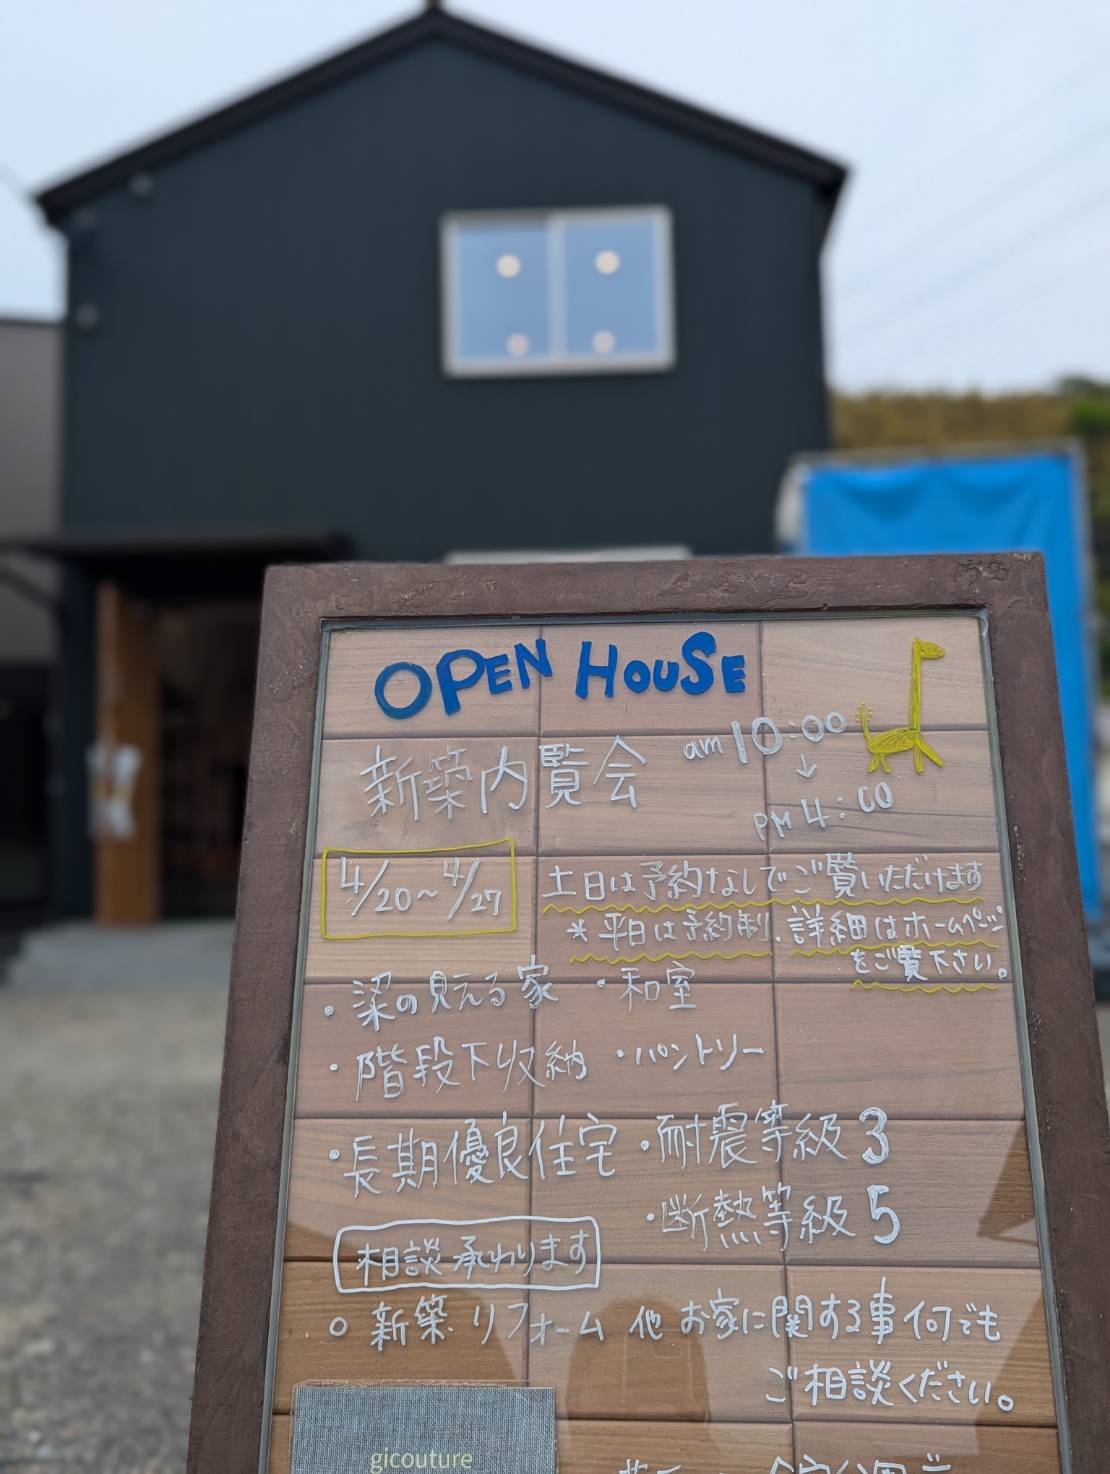 OPEN HOUSE
新築内覧会
am 10:00
↓
PM 4:00
4/20~4/27
土日は予約なしでご覧いただけます
*平日は予約制、詳細はホームページ
をご覧下さい。
・梁の見える家 ・和室
・階段下収納 ・パントリー
・長期優良住宅 ・耐震等級3
・断熱等級5
相談承わります
○ 新築 リフォーム 他 お家に関する事何でも
ご相談ください。
gicouture